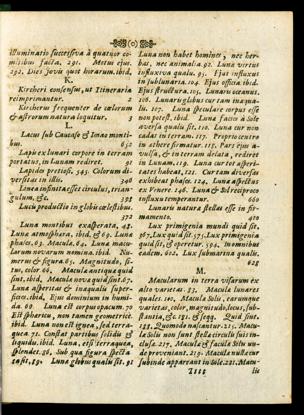 illuminatio successiva à quatuor co-
mitibus facta. 291. Motus ejus.
292. Dies Jovis quot horarum. ibid.
K.
Kircheri consensus, ut Itineraria
reimprimantur. 2
Kircherus frequenter de cœlorum
& astrorum natura loquitur. 2
Lacus sub Caucaso & Imao monti-
bus. 652
Lapis ex lunari corpore in terram
portatus, in Lunam rediret.
Lapides pretiosi. 545. Colorum di-
versitas in illis. 398
Linea infinita esset circulus, trian-
gulum, &c. 398
Lucis productio in globis cœlestibus.
372
Luna montibus exasperata. 48.
Luna atmosphæra. ibid. & 69. Luna
phases. 63. Macula. 64. Luna macu-
larum novarum nomina. ibid. Nu-
merus & figura. 65. Magnitudo, si-
tus, color. 66. Maculæ antiquæ quid
sint. ibid. Macula nova quid sint. 67.
Luna asperitas & inæqualis super-
ficies. ibid. Ejus dominium in humi-
da. 69. Luna est corpus opacum. 70
Est sphæricum, non tamen geometricè.
ibid. Luna non est ignea, sed terra-
quea. 71. Constat partibus solidis &
liquidis. ibid. Luna, etsi terraquea,
splendet. 56. Sub qua figura specta-
ta sit. 89. Luna globus qualis sit. 91
Luna non habet homines, nec her-
bas, nec animalia. 92. Luna virtus
influxiva qualis. 95. Ejus influxus
in sublunaria. 104. Ejus officia. ibid.
Ejus structura. 105. Lunaris oceanus.
106. Lunaris globus cur tam inæqua-
lis. 107. Luna speculare corpus esse
non potest. ibid. Luna facies à Sole
aversa qualis sit. 110. Luna cur non
cadat in terram. 117. Proprio centro
in æthere firmatur. 115. Pars ejus a-
vulsa, & in terram delata, rediret
in Lunam. 119. Luna cur tot asperi-
tates habeat. 121. Cur tam diversas
exhibeat phases. 124. Luna aspectus
ex Venere. 146. Luna & Solis reciproco
influxu temperantur. 660
Lunaris natura stellas esse in fir-
mamento. 410
Lux primigenia mundi quid sit.
367. Lux quid sit. 575. Lux primigenia
quid sit, & operetur. 594. In omnibus
eadem. 602. Lux submarina qualis.
628
M.
Macularum in terra visarum ex
alto varietas. 33. Maculæ lunares
quales. 110. Maculæ Solis, earumque
varietas, color, magnitudo, locus, sub-
stantia, &c. 181. & seqq. Quid sint.
183. Quomodo nascantur. 215. Macu-
læ Solis non sunt stella circulis suis in-
clusa. 217. Macula & facula Solis un-
de proveniant. 219. Macula nulla cur
subinde appareant in Sole. 221. Macu-
Tttt læ